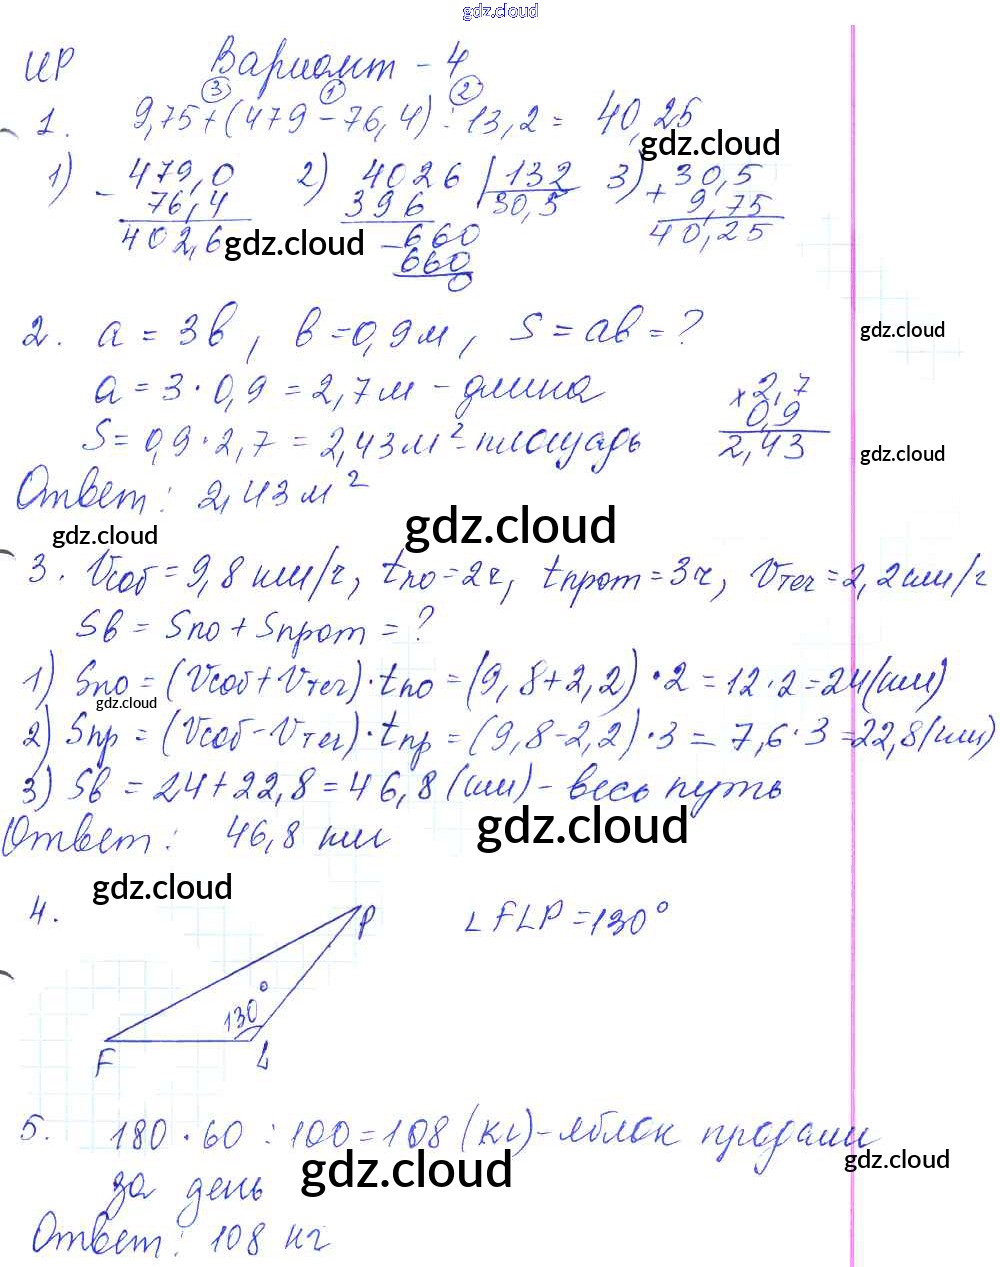 gdz.cloud
ИР Вариант - 4
3 1 2
1. 9,75+(479-76,4):13,2= 40,25
gdz.cloud
1) - 479,0 2) 4026 | 132 3) + 30,5
76,4 396 30,5 9,75
402,6 - 660 40,25
gdz.cloud
660
0
2. a = 3в, в=0,9м, S=aв=?
gdz.cloud
a=3·0,9=2,7м - длина × 2,7
0,9
S=0,9·2,7=2,43м²-площадь 2,43
gdz.cloud
Ответ: 2,43м²
gdz.cloud gdz.cloud
3. Vсоб=9,8км/ч, tпо=2ч, tпрот=3ч, Vтеч=2,2км/ч
Sв = Sпо + Sпрот = ?
1) Sпо=(Vсоб+Vтеч)·tпо=(9,8+2,2)·2=12·2=24(км)
gdz.cloud
2) Sпр=(Vсоб-Vтеч)·tпр=(9,8-2,2)·3=7,6·3=22,8(км)
3) Sв=24+22,8=46,8(км)-весь путь
Ответ: 46,8 км
gdz.cloud
gdz.cloud
4. P ∠FLP=130°
gdz.cloud
130°
F L
5. 180·60:100=108(кг)-яблок продали
gdz.cloud gdz.cloud
за день
Ответ: 108 кг